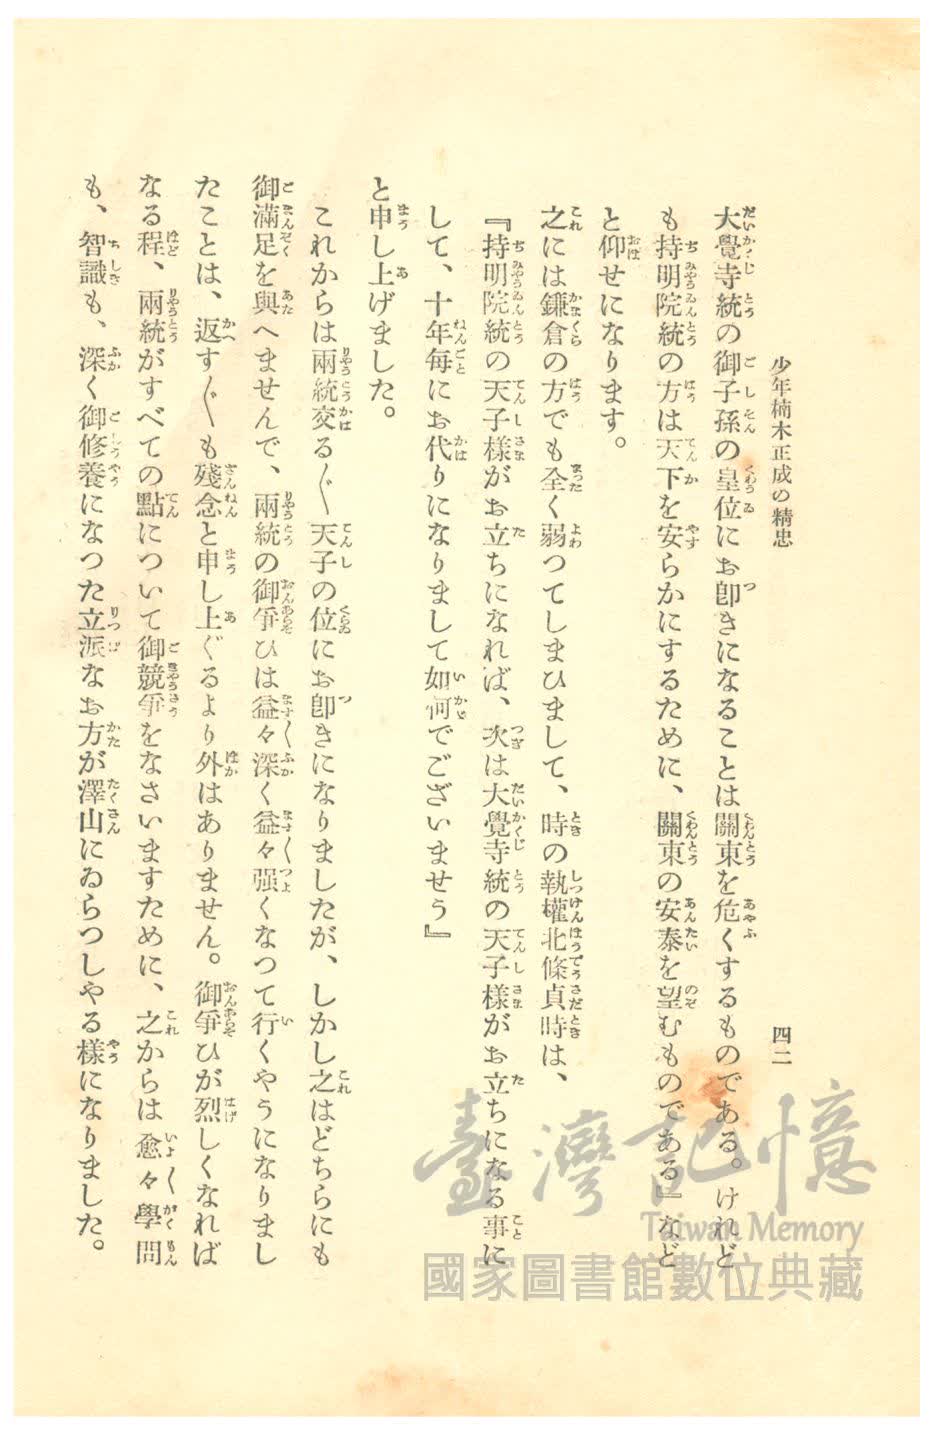 少年楠木正成の精忠
四二
大覺寺統の御子孫の皇位にお卽きになることは關東を危くするものである。けれど
も持明院統の方は天下を安らかにするために、關東の安泰を望むものである』など
と仰せになります。
之には鎌倉の方でも全く弱つてしまひまして、時の執權北條貞時は、
『持明院統の天子樣がお立ちになれば、次は大覺寺統の天子樣がお立ちになる事に
して、十年每にお代りになりまして如何でございませう』
と申し上げました。
これからは兩統交る〴〵天子の位にお卽きになりましたが、しかし之はどちらにも
御滿足を與へませんで、兩統の御爭ひは益々深く益々强くなつて行くやうになりまし
たことは、返す〴〵も殘念と申し上ぐるより外はありません。御爭ひが烈しくなれば
なる程、兩統がすべての點について御競爭をなさいますために、之からは愈々學問
も、智識も、深く御修養になつた立派なお方が澤山にゐらつしやる樣になりました。
臺灣記憶
Taiwan Memory
國家圖書館數位典藏